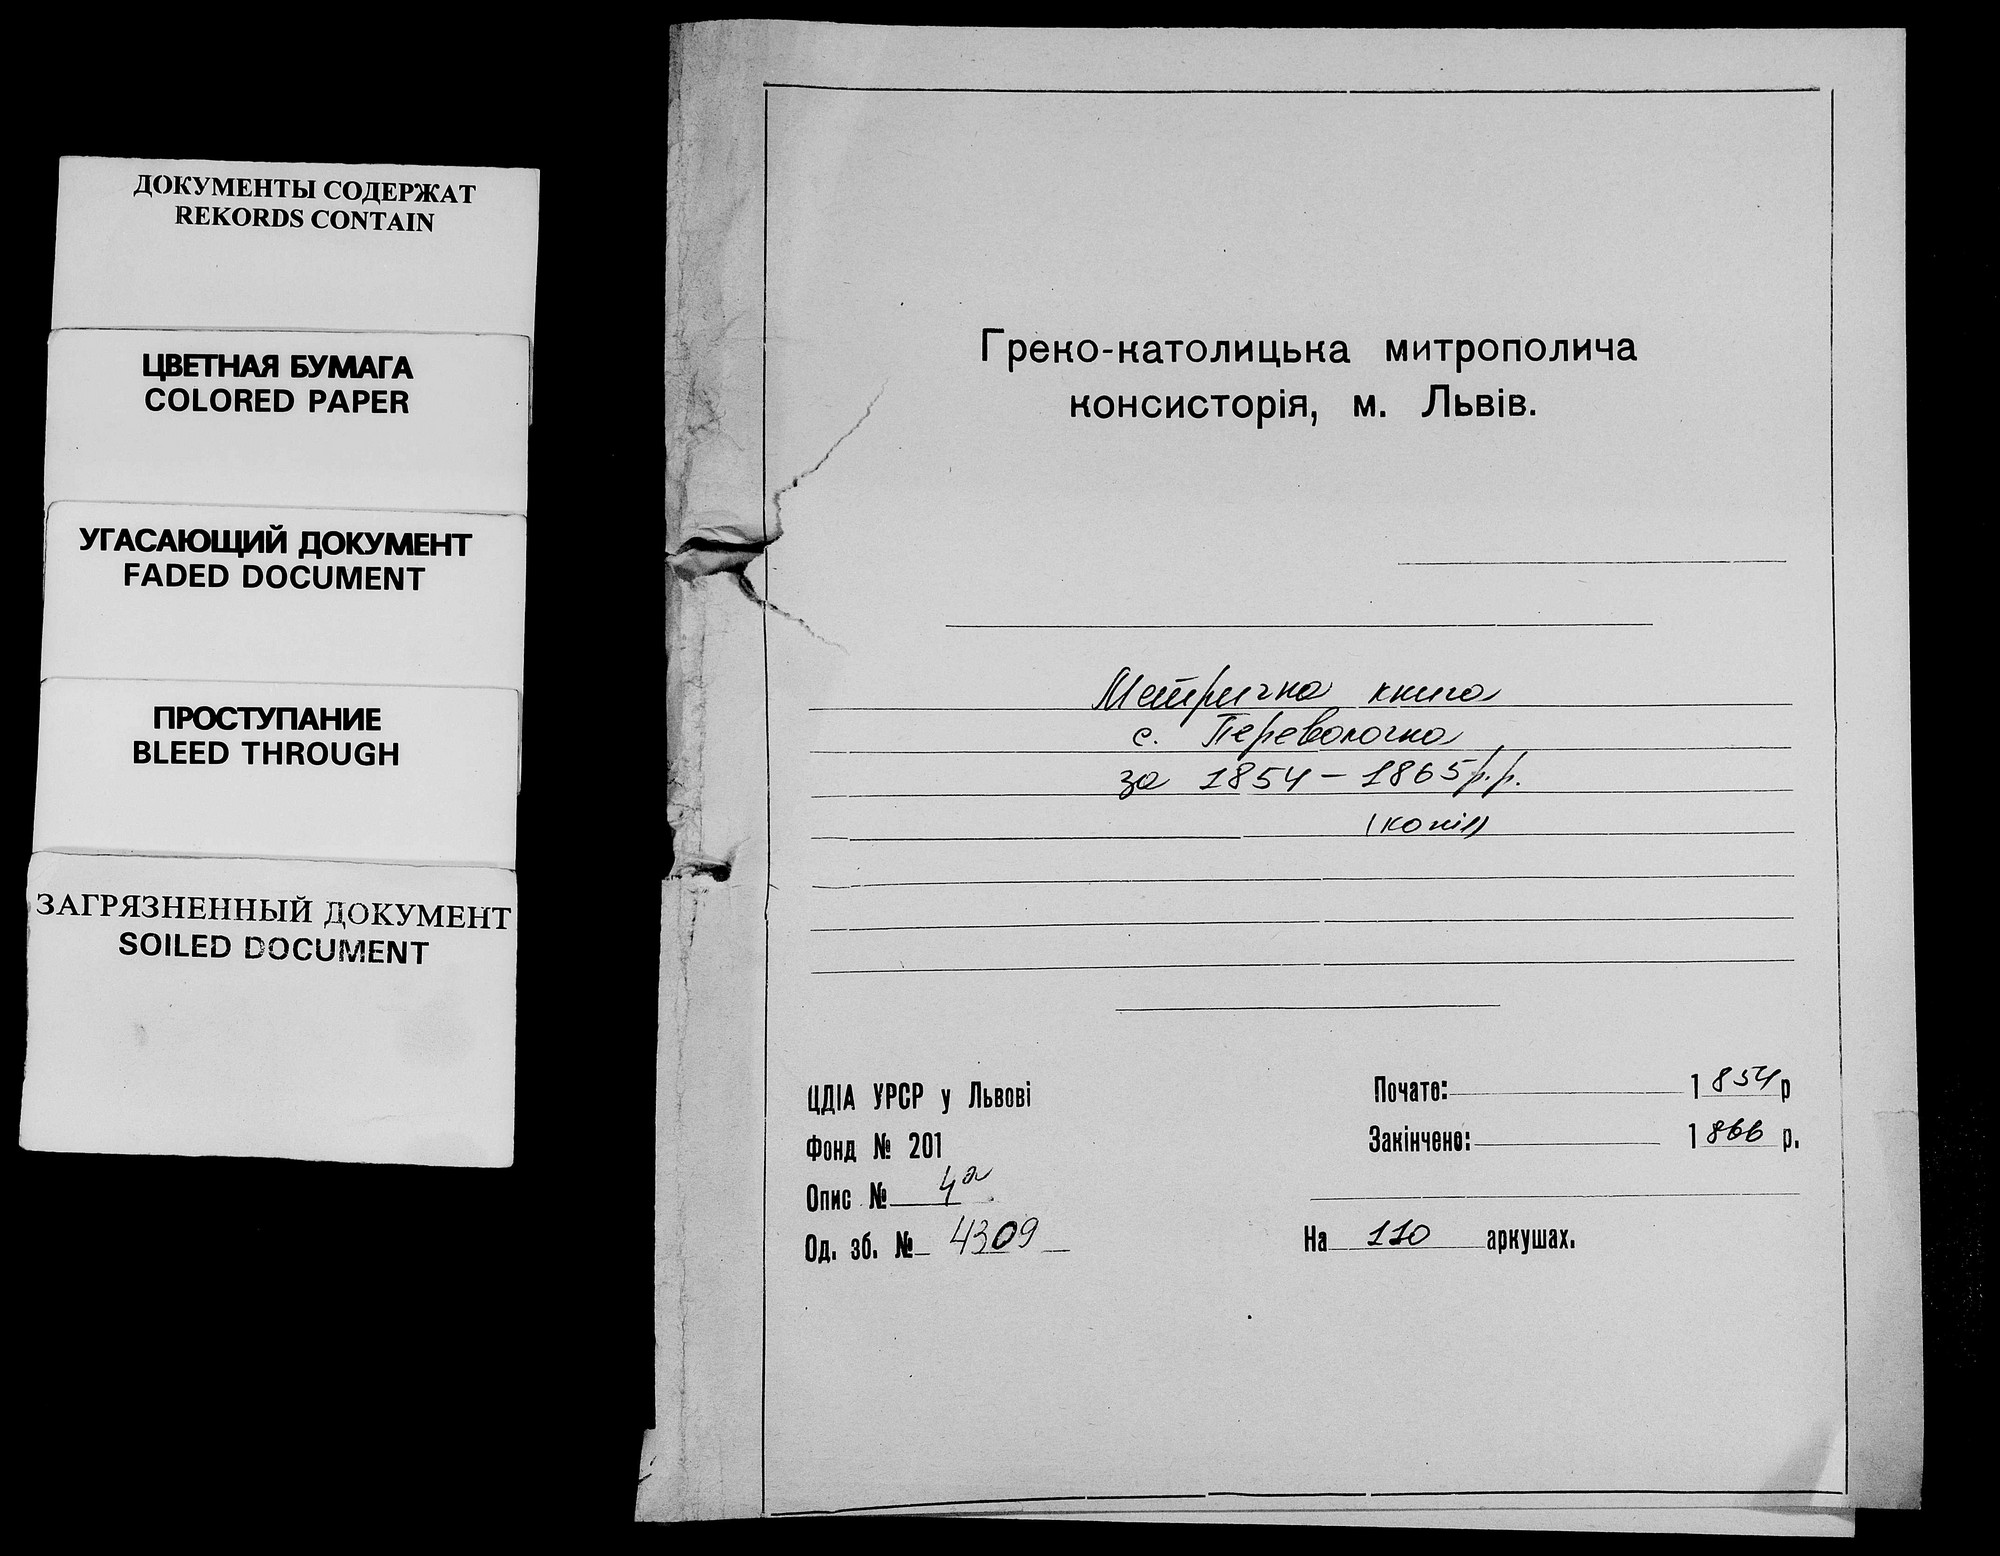 ДОКУМЕНТЫ СОДЕРЖАТ
REKORDS CONTAIN
ЦВЕТНАЯ БУМАГА
COLORED PAPER
УГАСАЮЩИЙ ДОКУМЕНТ
FADED DOCUMENT
ПРОСТУПАНИЕ
BLEED THROUGH
ЗАГРЯЗНЕННЫЙ ДОКУМЕНТ
SOILED DOCUMENT
Греко-католицька митрополича
консисторія, м. Львів.
Метрична книга
с. Переволочна
за 1854 – 1865 р.р.
(копія)
ЦДІА УРСР у Львові
Фонд № 201
Опис № 4а
Од. зб. № 4309
Почато: 1854 р
Закінчено: 1866 р.
На 110 аркушах.